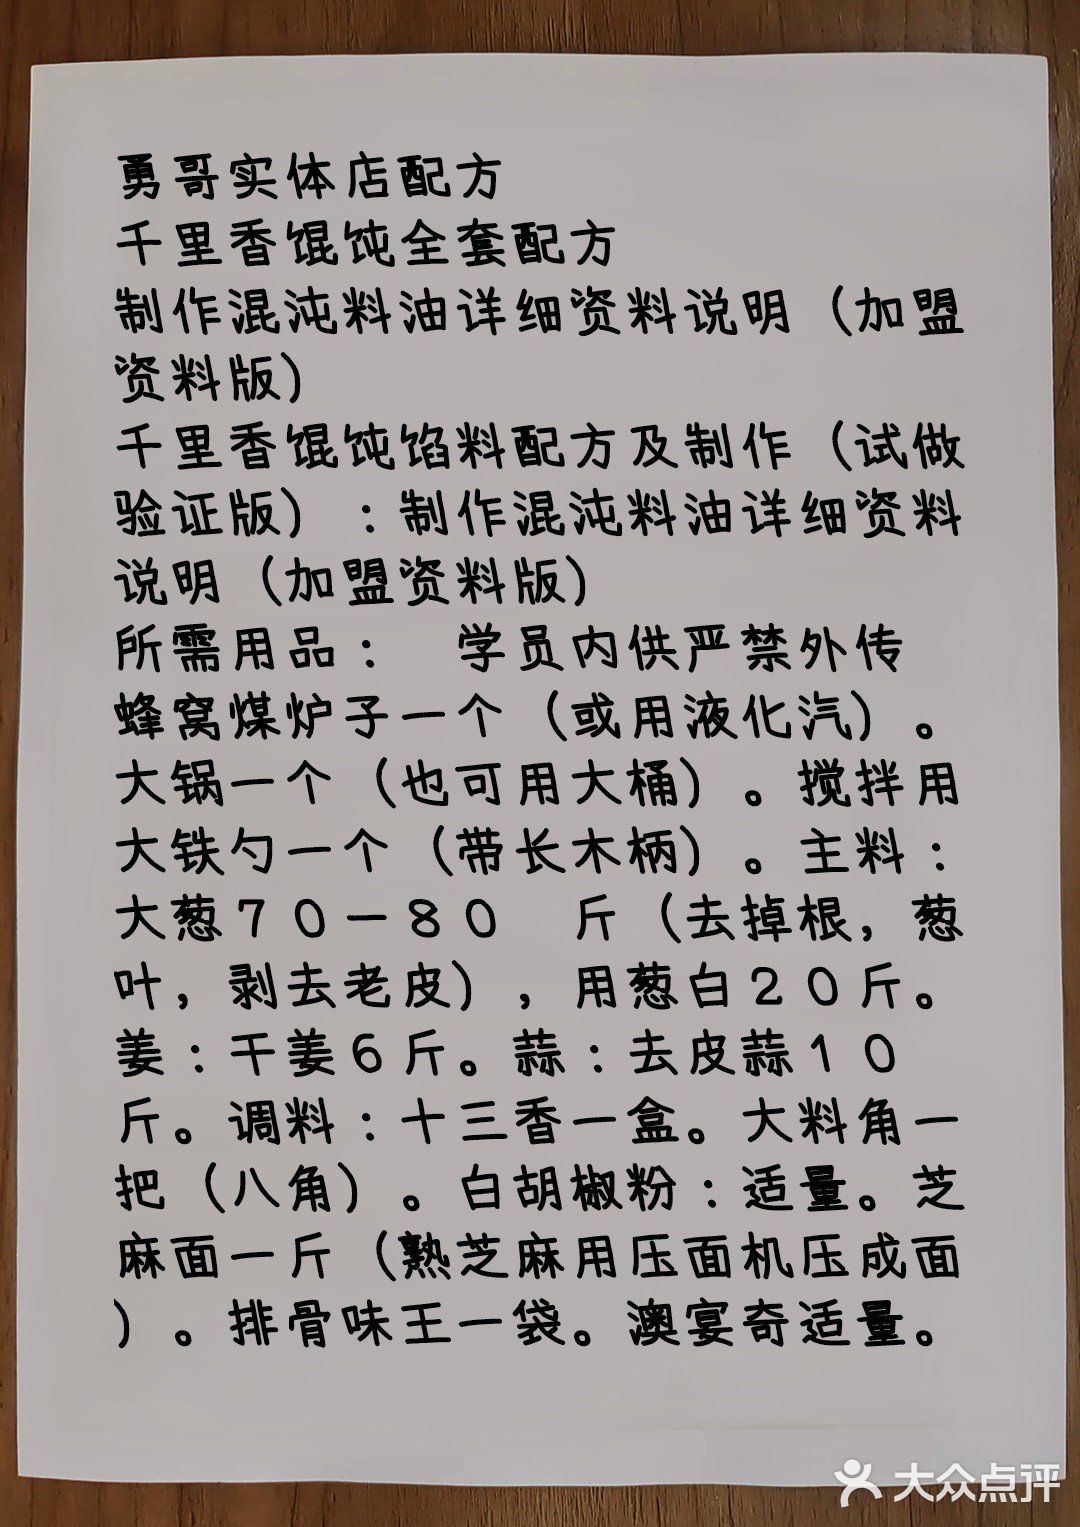 勇哥实体店配方
千里香馄饨全套配方
制作混沌料油详细资料说明（加盟
资料版）
千里香馄饨馅料配方及制作（试做
验证版）：制作混沌料油详细资料
说明（加盟资料版）
所需用品：　学员内供严禁外传
蜂窝煤炉子一个（或用液化汽）。
大锅一个（也可用大桶）。搅拌用
大铁勺一个（带长木柄）。主料：
大葱７０－８０　斤（去掉根，葱
叶，剥去老皮），用葱白２０斤。
姜：干姜６斤。蒜：去皮蒜１０
斤。调料：十三香一盒。大料角一
把（八角）。白胡椒粉：适量。芝
麻面一斤（熟芝麻用压面机压成面
）。排骨味王一袋。澳宴奇适量。
大众点评